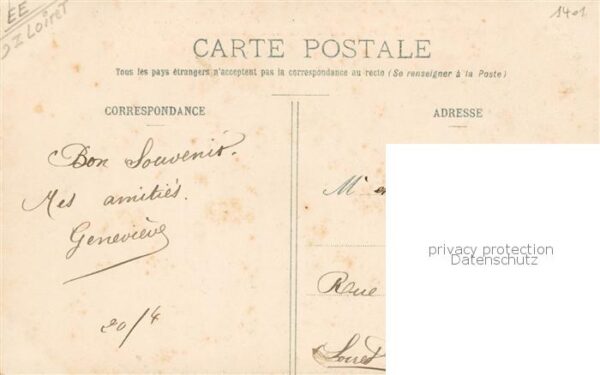 EE
Loiret
1401
CARTE POSTALE
Tous les pays étrangers n'acceptent pas la correspondance au recto (Se renseigner à la Poste)
CORRESPONDANCE
ADRESSE
Bon Souvenir.
Mes amitiés.
Geneviève
20/4
Mr
Rue
privacy protection
Datenschutz